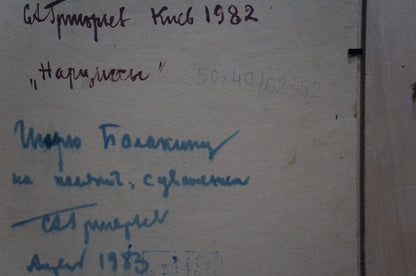 СА Григорьев Киев 1982
„Нарциссы"
50х40/62х52
Игорю Балакину
на память, с уважением
СА Григорьев
Апрель 1983